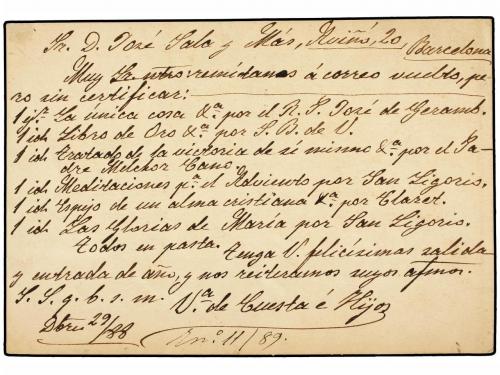 Sr. D. José Sala y Más, Aviñó, 20, Barcelona
Muy Sr. ntro: remítanos á correo vuelto, pe-
ro sin certificar:
1 ejr. La única cosa &a. por el R. P. José de Geramb.
1 id. Libro de Oro &a. por S. B. de V.
1 id. tratado de la victoria de sí mismo &a. por el Pa-
dre Melchor Cano.
1 id. Meditaciones pa. el Adviento por San Ligorio.
1 id. Espejo de un alma cristiana &a. por Claret.
1 id. Las Glorias de María por San Ligorio.
todos en pasta. tenga V. felicísimas salida
y entrada de año, y nos reiteramos suyos afmos.
S. S. q. b. s. m. Va. de Cuesta é Hijos
Dbre. 29/88
En.o 11/89.